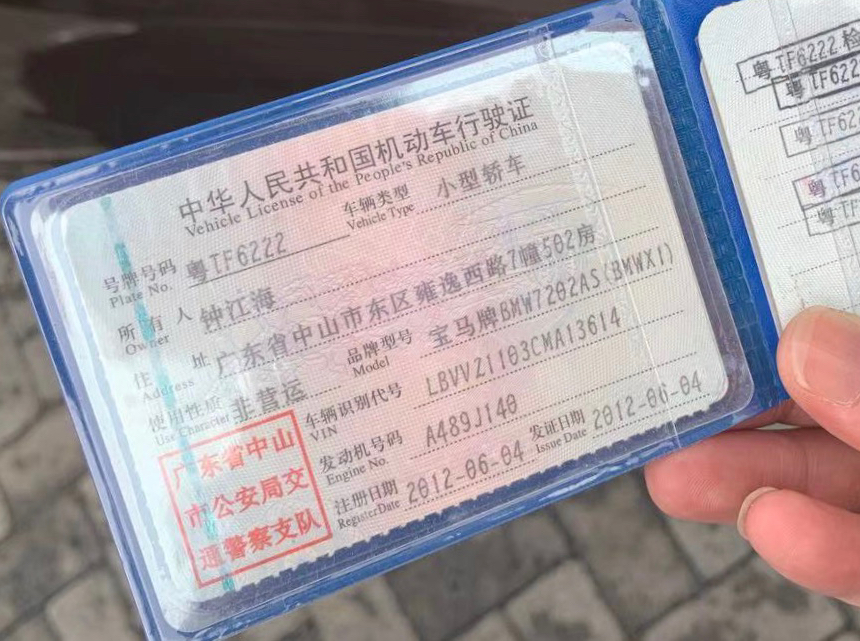 中华人民共和国机动车行驶证
Vehicle License of the People's Republic of China
号牌号码 粤TF6222 车辆类型 小型轿车
Plate No. Vehicle Type
所有人 钟江海
Owner
住址 广东省中山市东区雍逸西路7幢502房
Address
使用性质 非营运 品牌型号 宝马牌BMW7202AS(BMWX1)
Use Character Model
车辆识别代号 LBVVZ1103CMA13614
VIN
发动机号码 A489J140
Engine No.
注册日期 2012-06-04 发证日期 2012-06-04
Register Date Issue Date
广东省中山
市公安局交
通警察支队
粤TF6222 检
粤TF622
粤TF62
粤TF6
粤TF